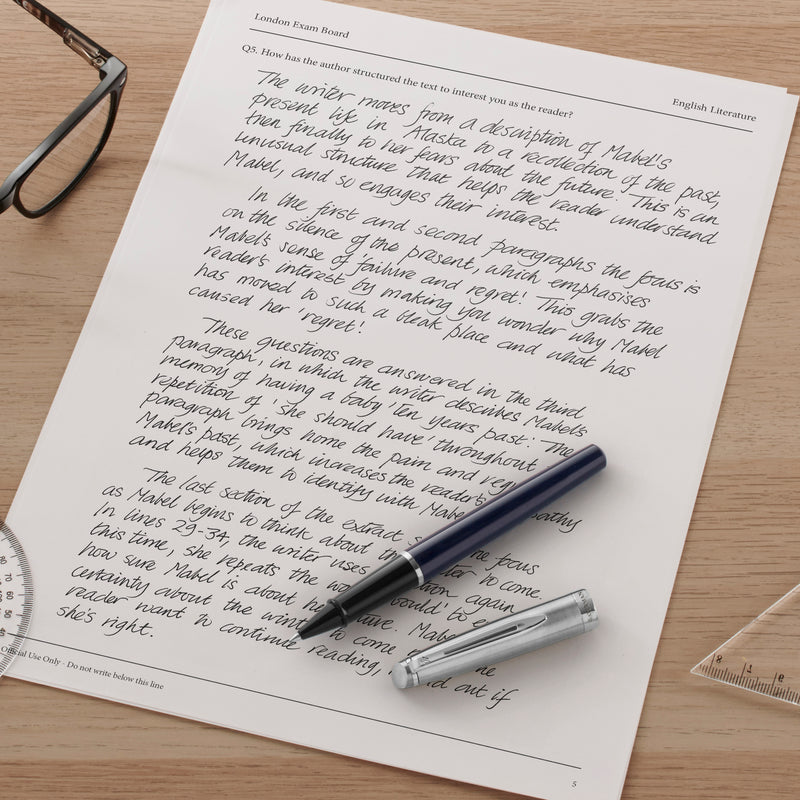 London Exam Board
English Literature
Q5. How has the author structured the text to interest you as the reader?
The writer moves from a description of Mabel's
present life in Alaska to a recollection of the past,
then finally to her fears about the future. This is an
unusual structure that helps the reader understand
Mabel, and so engages their interest.
In the first and second paragraphs the focus is
on the silence of the present, which emphasises
Mabel's sense of 'failure and regret'. This grabs the
reader's interest by making you wonder why Mabel
has moved to such a bleak place and what has
caused her 'regret'.
These questions are answered in the third
paragraph, in which the writer describes Mabel's
memory of having a baby 'ten years past'. The
repetition of 'she should have' throughout
paragraph brings home the pain and
Mabel's past, which increases the reader's
and helps them to identify with
The last section of the extract
as Mabel begins to think about to come.
In lines 29-34, the writer uses again
this time, she repeats the would' to
how sure Mabel is about
certainty about the to come
reader want to continue reading, out if
she's right.
Official Use Only - Do not write below this line
5
8
9
80
70
60
50
40